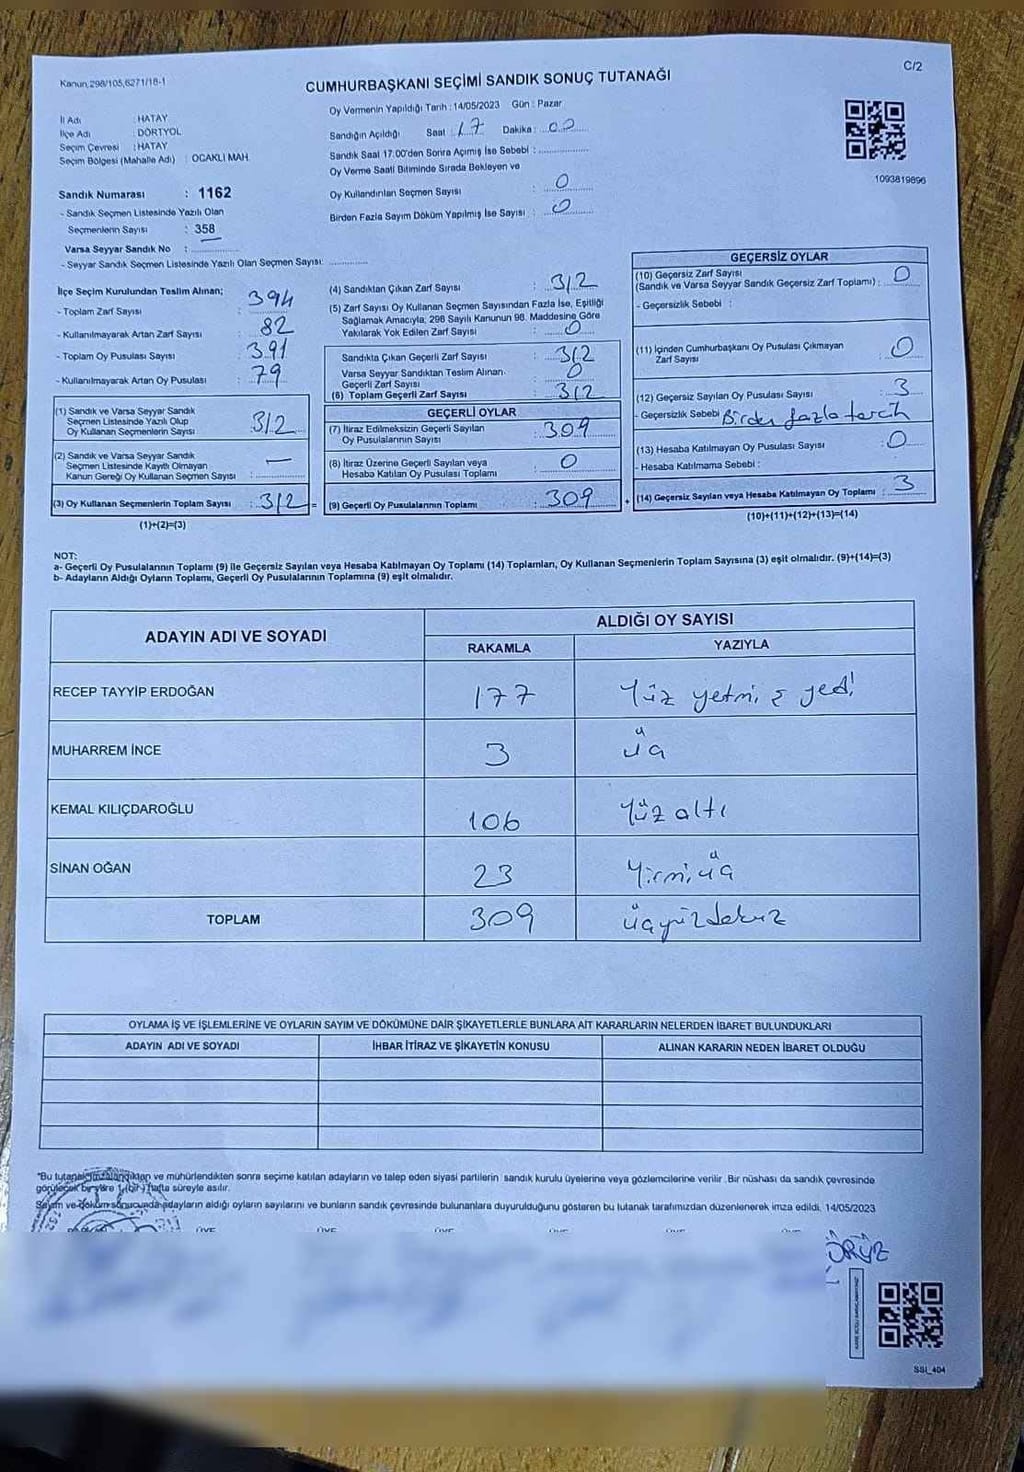 Kanun,298/105,6271/18-1
CUMHURBAŞKANI SEÇİMİ SANDIK SONUÇ TUTANAĞI
C/2
İl Adı : HATAY
İlçe Adı : DÖRTYOL
Seçim Çevresi : HATAY
Seçim Bölgesi (Mahalle Adı) : OCAKLI MAH.
Sandık Numarası : 1162
- Sandık Seçmen Listesinde Yazılı Olan
Seçmenlerin Sayısı : 358
Varsa Seyyar Sandık No : ..............
- Seyyar Sandık Seçmen Listesinde Yazılı Olan Seçmen Sayısı: ............
Oy Vermenin Yapıldığı Tarih : 14/05/2023 Gün : Pazar
Sandığın Açıldığı Saat : 17 Dakika : 00
Sandık Saat 17:00'den Sonra Açımış İse Sebebi : ..............
Oy Verme Saati Bitiminde Sırada Bekleyen ve
Oy Kullandırılan Seçmen Sayısı : 0
Birden Fazla Sayım Döküm Yapılmış İse Sayısı : 0
1093819896
İlçe Seçim Kurulundan Teslim Alınan;
- Toplam Zarf Sayısı : 394
- Kullanılmayarak Artan Zarf Sayısı : 82
- Toplam Oy Pusulası Sayısı : 391
- Kullanılmayarak Artan Oy Pusulası : 79
(1) Sandık ve Varsa Seyyar Sandık
Seçmen Listesinde Yazılı Olup
Oy Kullanan Seçmenlerin Sayısı : 312
(2) Sandık ve Varsa Seyyar Sandık
Seçmen Listesinde Kayıtlı Olmayan
Kanun Gereği Oy Kullanan Seçmen Sayısı : —
(3) Oy Kullanan Seçmenlerin Toplam Sayısı : 312 =
(1)+(2)=(3)
(4) Sandıktan Çıkan Zarf Sayısı : 312
(5) Zarf Sayısı Oy Kullanan Seçmen Sayısından Fazla İse, Eşitliği
Sağlamak Amacıyla, 298 Sayılı Kanunun 98. Maddesine Göre
Yakılarak Yok Edilen Zarf Sayısı : 0
Sandıkta Çıkan Geçerli Zarf Sayısı : 312
Varsa Seyyar Sandıktan Teslim Alınan
Geçerli Zarf Sayısı : 0
(6) Toplam Geçerli Zarf Sayısı : 312
GEÇERLİ OYLAR
(7) İtiraz Edilmeksizin Geçerli Sayılan
Oy Pusulalarının Sayısı : 309
(8) İtiraz Üzerine Geçerli Sayılan veya
Hesaba Katılan Oy Pusulası Toplamı : 0
(9) Geçerli Oy Pusulalarının Toplamı : 309 +
GEÇERSİZ OYLAR
(10) Geçersiz Zarf Sayısı
(Sandık ve Varsa Seyyar Sandık Geçersiz Zarf Toplamı) : 0
- Geçersizlik Sebebi :
(11) İçinden Cumhurbaşkanı Oy Pusulası Çıkmayan
Zarf Sayısı : 0
(12) Geçersiz Sayılan Oy Pusulası Sayısı : 3
- Geçersizlik Sebebi Birden fazla tercih
(13) Hesaba Katılmayan Oy Pusulası Sayısı : 0
- Hesaba Katılmama Sebebi :
(14) Geçersiz Sayılan veya Hesaba Katılmayan Oy Toplamı : 3
(10)+(11)+(12)+(13)=(14)
NOT:
a- Geçerli Oy Pusulalarının Toplamı (9) ile Geçersiz Sayılan veya Hesaba Katılmayan Oy Toplamı (14) Toplamları, Oy Kullanan Seçmenlerin Toplam Sayısına (3) eşit olmalıdır. (9)+(14)=(3)
b- Adayların Aldığı Oyların Toplamı, Geçerli Oy Pusulalarının Toplamına (9) eşit olmalıdır.
ADAYIN ADI VE SOYADI
ALDIĞI OY SAYISI
RAKAMLA YAZIYLA
RECEP TAYYİP ERDOĞAN 177 Yüz yetmiş yedi
MUHARREM İNCE 3 üç
KEMAL KILIÇDAROĞLU 106 Yüz altı
SİNAN OĞAN 23 Yirmi üç
TOPLAM 309 üçyüzdokuz
OYLAMA İŞ VE İŞLEMLERİNE VE OYLARIN SAYIM VE DÖKÜMÜNE DAİR ŞİKAYETLERLE BUNLARA AİT KARARLARIN NELERDEN İBARET BULUNDUKLARI
ADAYIN ADI VE SOYADI İHBAR İTİRAZ VE ŞİKAYETİN KONUSU ALINAN KARARIN NEDEN İBARET OLDUĞU
"Bu tutanak imzalandıktan ve mühürlendikten sonra seçime katılan adayların ve talep eden siyasi partilerin sandık kurulu üyelerine veya gözlemcilerine verilir. Bir nüshası da sandık çevresinde
görülecek bir yere 1 (bir) hafta süreyle asılır.
Sayım ve döküm sonucunda adayların aldığı oyların sayılarını ve bunların sandık çevresinde bulunanlara duyurulduğunu gösteren bu tutanak tarafımızdan düzenlenerek imza edildi. 14/05/2023
ÜYE ÜYE ÜYE ÜYE ÜYE
SSİ_404